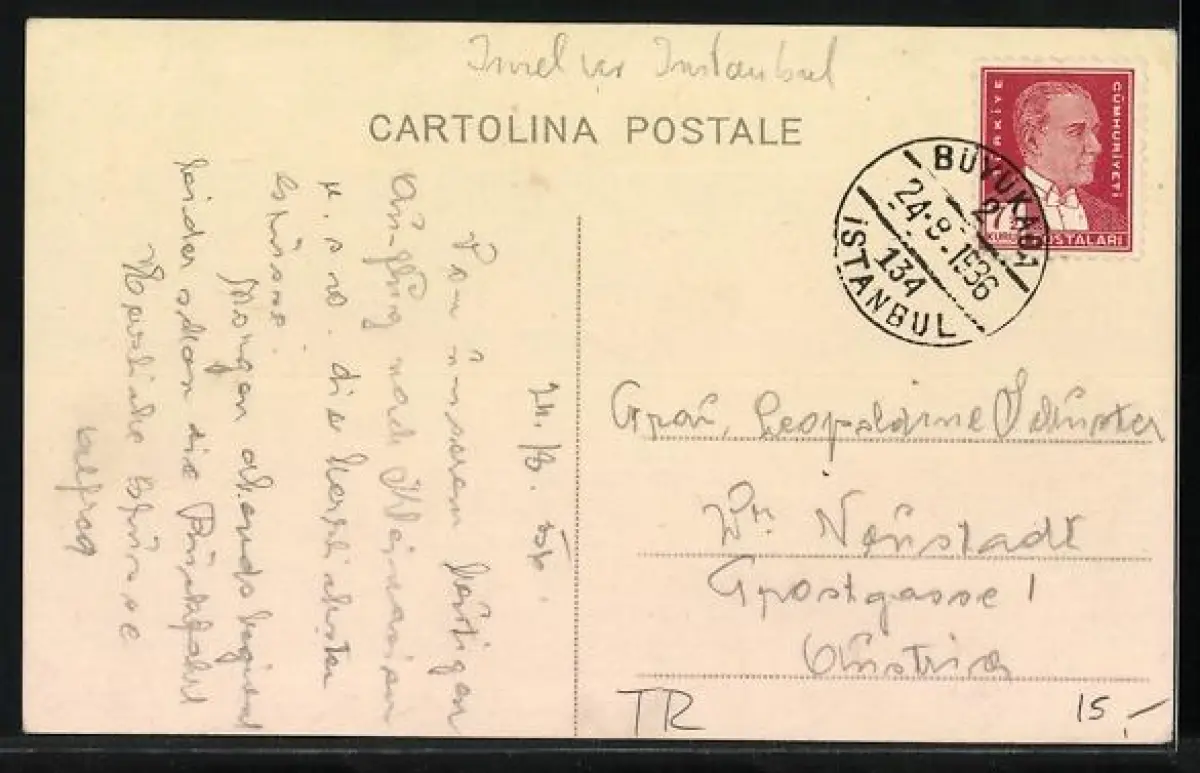 Insel vor Instanbul
CARTOLINA POSTALE
TÜRKİYE
CÜMHURİYETİ
KURUŞ
POSTALARI
BÜYÜKADA
24.8.1936
134
İSTANBUL
24./8.
Von unserem heutigen
Ausflug nach Kleinasien
u. s. w. die herzlichsten
Grüsse.
Morgen abends beginnt
leider schon die Rückfahrt
Herzliche Grüsse
Frau Leopoldine
Wr. Neustadt
Grostgasse 1
Austria
TR
15,-